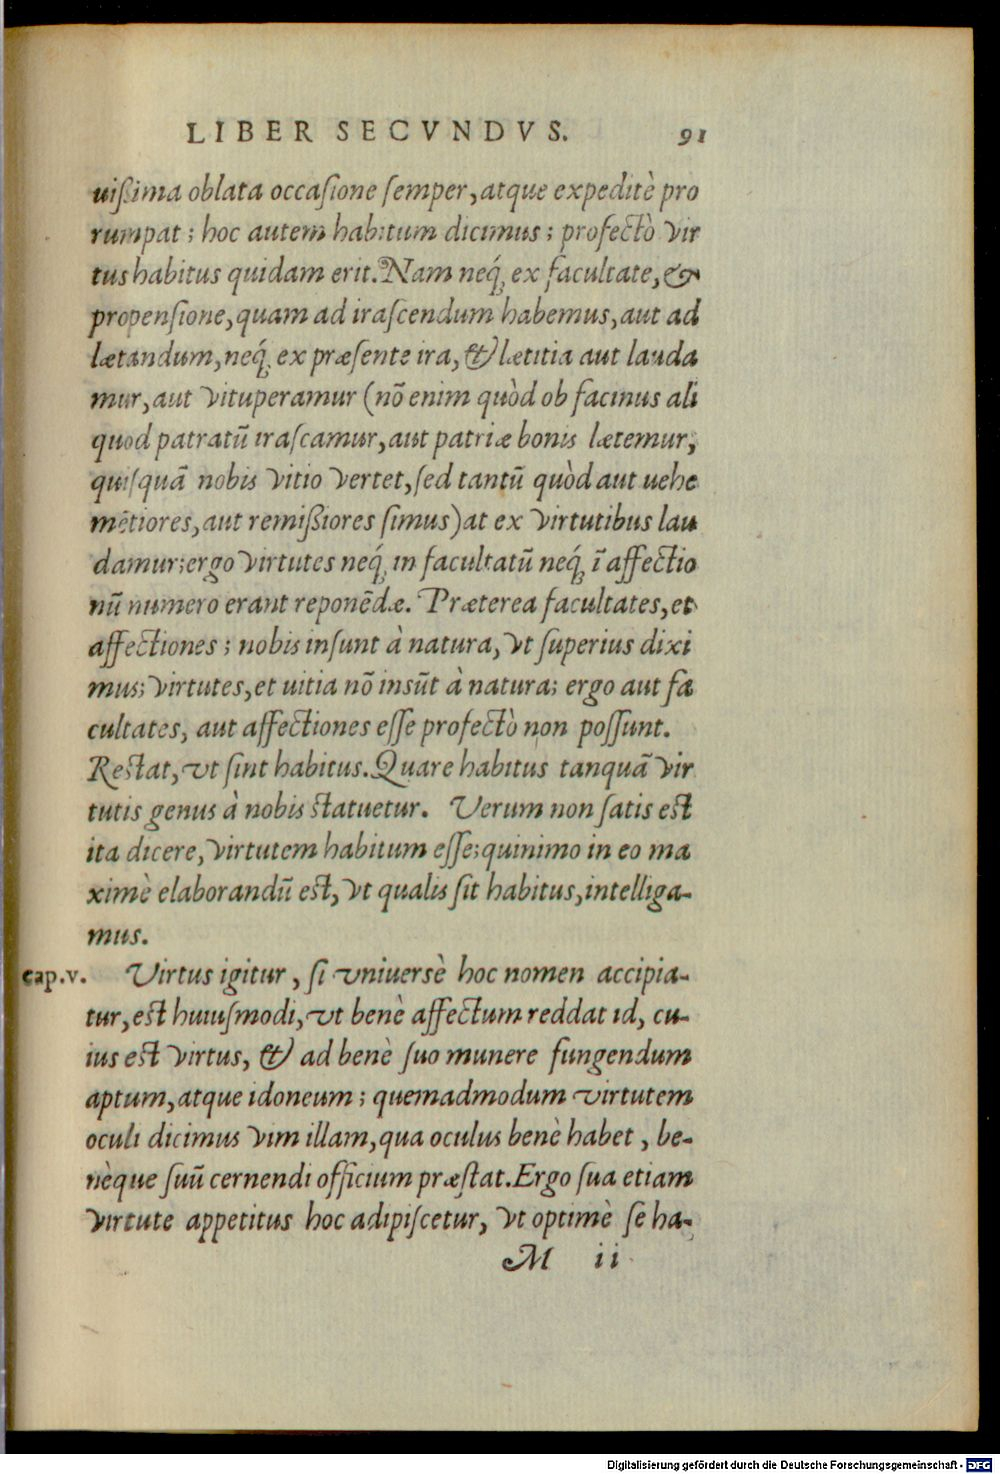 LIBER SECVNDVS. 91
uißima oblata occasione semper, atque expeditè pro
rumpat; hoc autem habitum dicimus; profectò vir
tus habitus quidam erit. Nam neq́; ex facultate, &
propensione, quam ad irascendum habemus, aut ad
lætandum, neq́; ex præsente ira, & lætitia aut lauda
mur, aut vituperamur (nõ enim quòd ob facinus ali
quod patratũ irascamur, aut patriæ bonis lætemur,
quisquã nobis vitio vertet, sed tantũ quòd aut uehe
mẽtiores, aut remißiores simus) at ex virtutibus lau
damur; ergo virtutes neq́; in facultatũ neq́; ĩ affectio
nũ numero erant reponẽdæ. Præterea facultates, et
affectiones; nobis insunt à natura, vt superius dixi
mus; virtutes, et uitia nõ insũt à natura; ergo aut fa
cultates, aut affectiones esse profectò non possunt.
Restat, vt sint habitus. Quare habitus tanquã vir
tutis genus à nobis statuetur. Verum non satis est
ita dicere, virtutem habitum esse; quinimo in eo ma
ximè elaborandũ est, vt qualis sit habitus, intelliga-
mus.
cap.v. Virtus igitur, si vniuersè hoc nomen accipia-
tur, est huiusmodi, vt benè affectum reddat id, cu-
ius est virtus, & ad benè suo munere fungendum
aptum, atque idoneum; quemadmodum virtutem
oculi dicimus vim illam, qua oculus benè habet, be-
nèque suũ cernendi officium præstat. Ergo sua etiam
virtute appetitus hoc adipiscetur, vt optimè se ha-
M ii
Digitalisierung gefördert durch die Deutsche Forschungsgemeinschaft - DFG